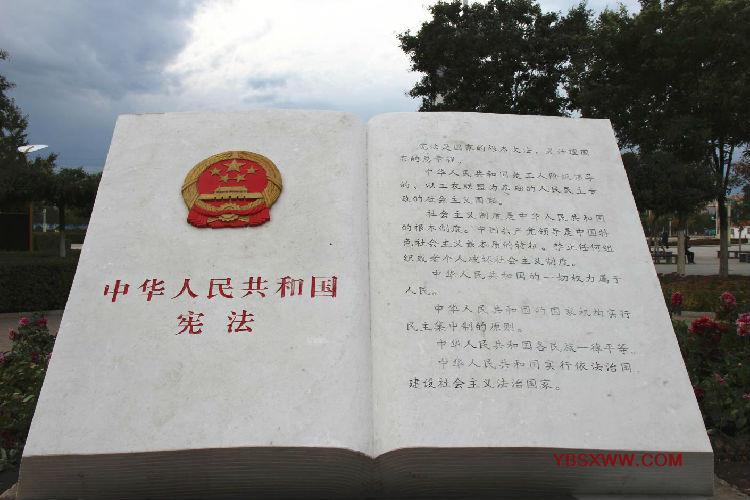 中华人民共和国
宪法
宪法是国家的根本大法，是治国
安邦的总章程。
中华人民共和国是工人阶级领导
的、以工农联盟为基础的人民民主专
政的社会主义国家。
社会主义制度是中华人民共和国
的根本制度。中国共产党领导是中国特
色社会主义最本质的特征。禁止任何组
织或者个人破坏社会主义制度。
中华人民共和国的一切权力属于
人民。
中华人民共和国的国家机构实行
民主集中制的原则。
中华人民共和国各民族一律平等。
中华人民共和国实行依法治国，
建设社会主义法治国家。
YBSXWW.COM